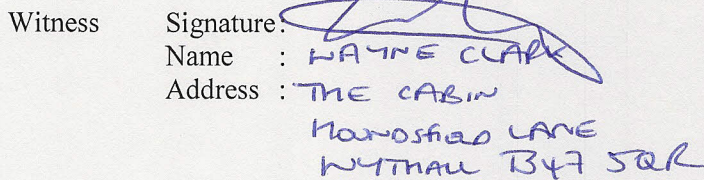 Witness Signature:
Name : WAYNE CLARK
Address : THE CABIN
HOUNDSFIELD LANE
WYTHALL B47 5QR